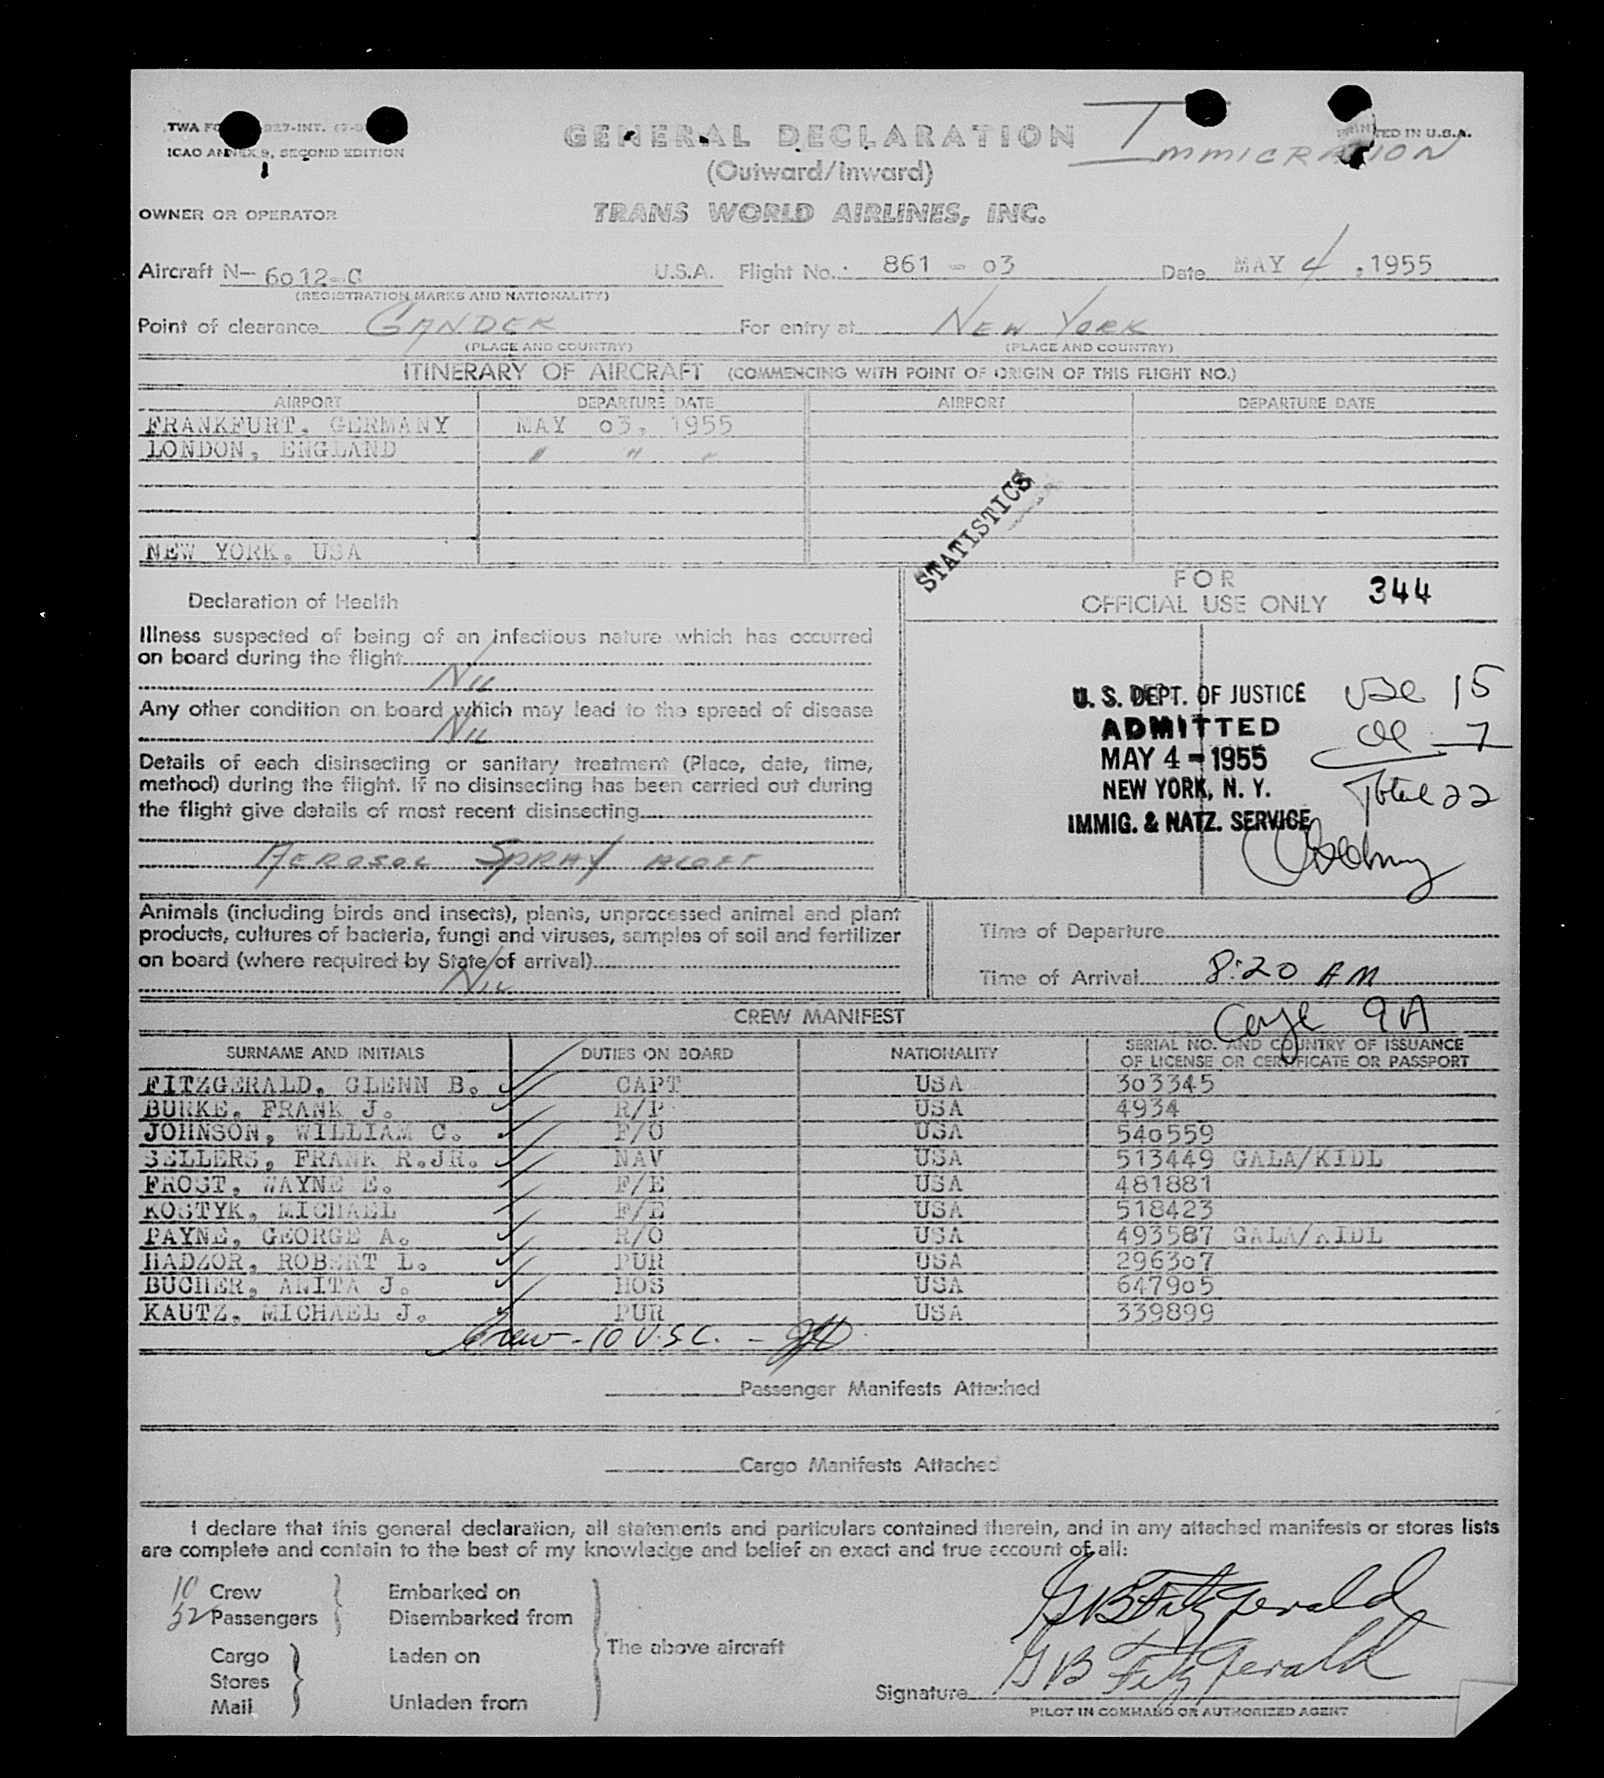 GENERAL DECLARATION
IMMIGRATION
ICAO ANNEX 9, SECOND EDITION
(Outward/Inward)
OWNER OR OPERATOR TRANS WORLD AIRLINES, INC.
Aircraft N- 6012-C U.S.A. Flight No. 861 - 03 Date MAY 4, 1955
(REGISTRATION MARKS AND NATIONALITY)
Point of clearance GANDER For entry at NEW YORK
(PLACE AND COUNTRY) (PLACE AND COUNTRY)
ITINERARY OF AIRCRAFT (COMMENCING WITH POINT OF ORIGIN OF THIS FLIGHT NO.)
AIRPORT DEPARTURE DATE AIRPORT DEPARTURE DATE
FRANKFURT, GERMANY MAY 03, 1955
LONDON, ENGLAND " " "
NEW YORK, USA
STATISTICS
Declaration of Health
Illness suspected of being of an infectious nature which has occurred
on board during the flight
NIL
Any other condition on board which may lead to the spread of disease
NIL
Details of each disinsecting or sanitary treatment (Place, date, time,
method) during the flight. If no disinsecting has been carried out during
the flight give details of most recent disinsecting
AEROSOL SPRAY ALOFT
FOR
OFFICIAL USE ONLY 344
U. S. DEPT. OF JUSTICE
ADMITTED
MAY 4 - 1955
NEW YORK, N. Y.
IMMIG. & NATZ. SERVICE
USC 15
al - 7
Total 22
Animals (including birds and insects), plants, unprocessed animal and plant
products, cultures of bacteria, fungi and viruses, samples of soil and fertilizer
on board (where required by State of arrival)
NIL
Time of Departure
Time of Arrival 8:20 AM
9A
CREW MANIFEST
SURNAME AND INITIALS DUTIES ON BOARD NATIONALITY SERIAL NO. AND COUNTRY OF ISSUANCE
OF LICENSE OR CERTIFICATE OR PASSPORT
FITZGERALD, GLENN B. CAPT USA 303345
BURKE, FRANK J. R/P USA 4934
JOHNSON, WILLIAM C. F/O USA 540559
SELLERS, FRANK R.JR. NAV USA 513449 GALA/KIDL
FROST, WAYNE E. F/E USA 481881
KOSTYK, MICHAEL F/E USA 518423
PAYNE, GEORGE A. R/O USA 493587 GALA/KIDL
HADZOR, ROBERT L. PUR USA 296307
BUCHER, ANITA J. HOS USA 647905
KAUTZ, MICHAEL J. PUR USA 339899
Crew - 10 U.S.C. -
Passenger Manifests Attached
Cargo Manifests Attached
I declare that this general declaration, all statements and particulars contained therein, and in any attached manifests or stores lists
are complete and contain to the best of my knowledge and belief an exact and true account of all:
10 Crew Embarked on
Passengers Disembarked from
The above aircraft
Cargo Laden on
Stores
Mail Unladen from
GB Fitzgerald
GB Fitzgerald
Signature
PILOT IN COMMAND OR AUTHORIZED AGENT